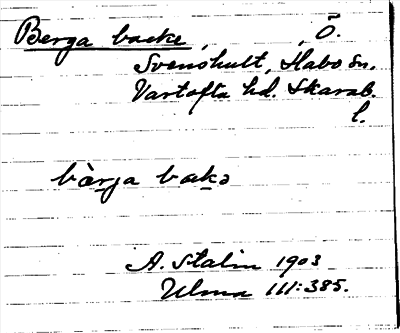 Berga backe, , Ö.
Svenshult, Habo sn.
Vartofta hd. Skarab.
l.
bæ̀rga bakə
A. Stalin 1903
Ulma 111:385.